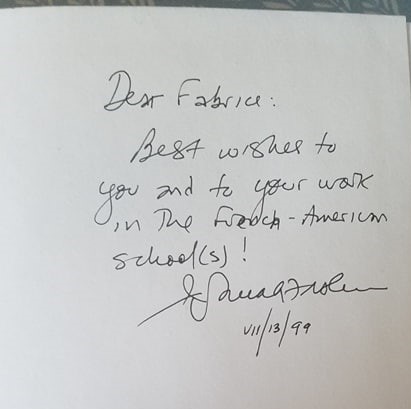 Dear Fabrice:
Best wishes to
you and to your work
in The French-American
school(s)!
VII/13/99